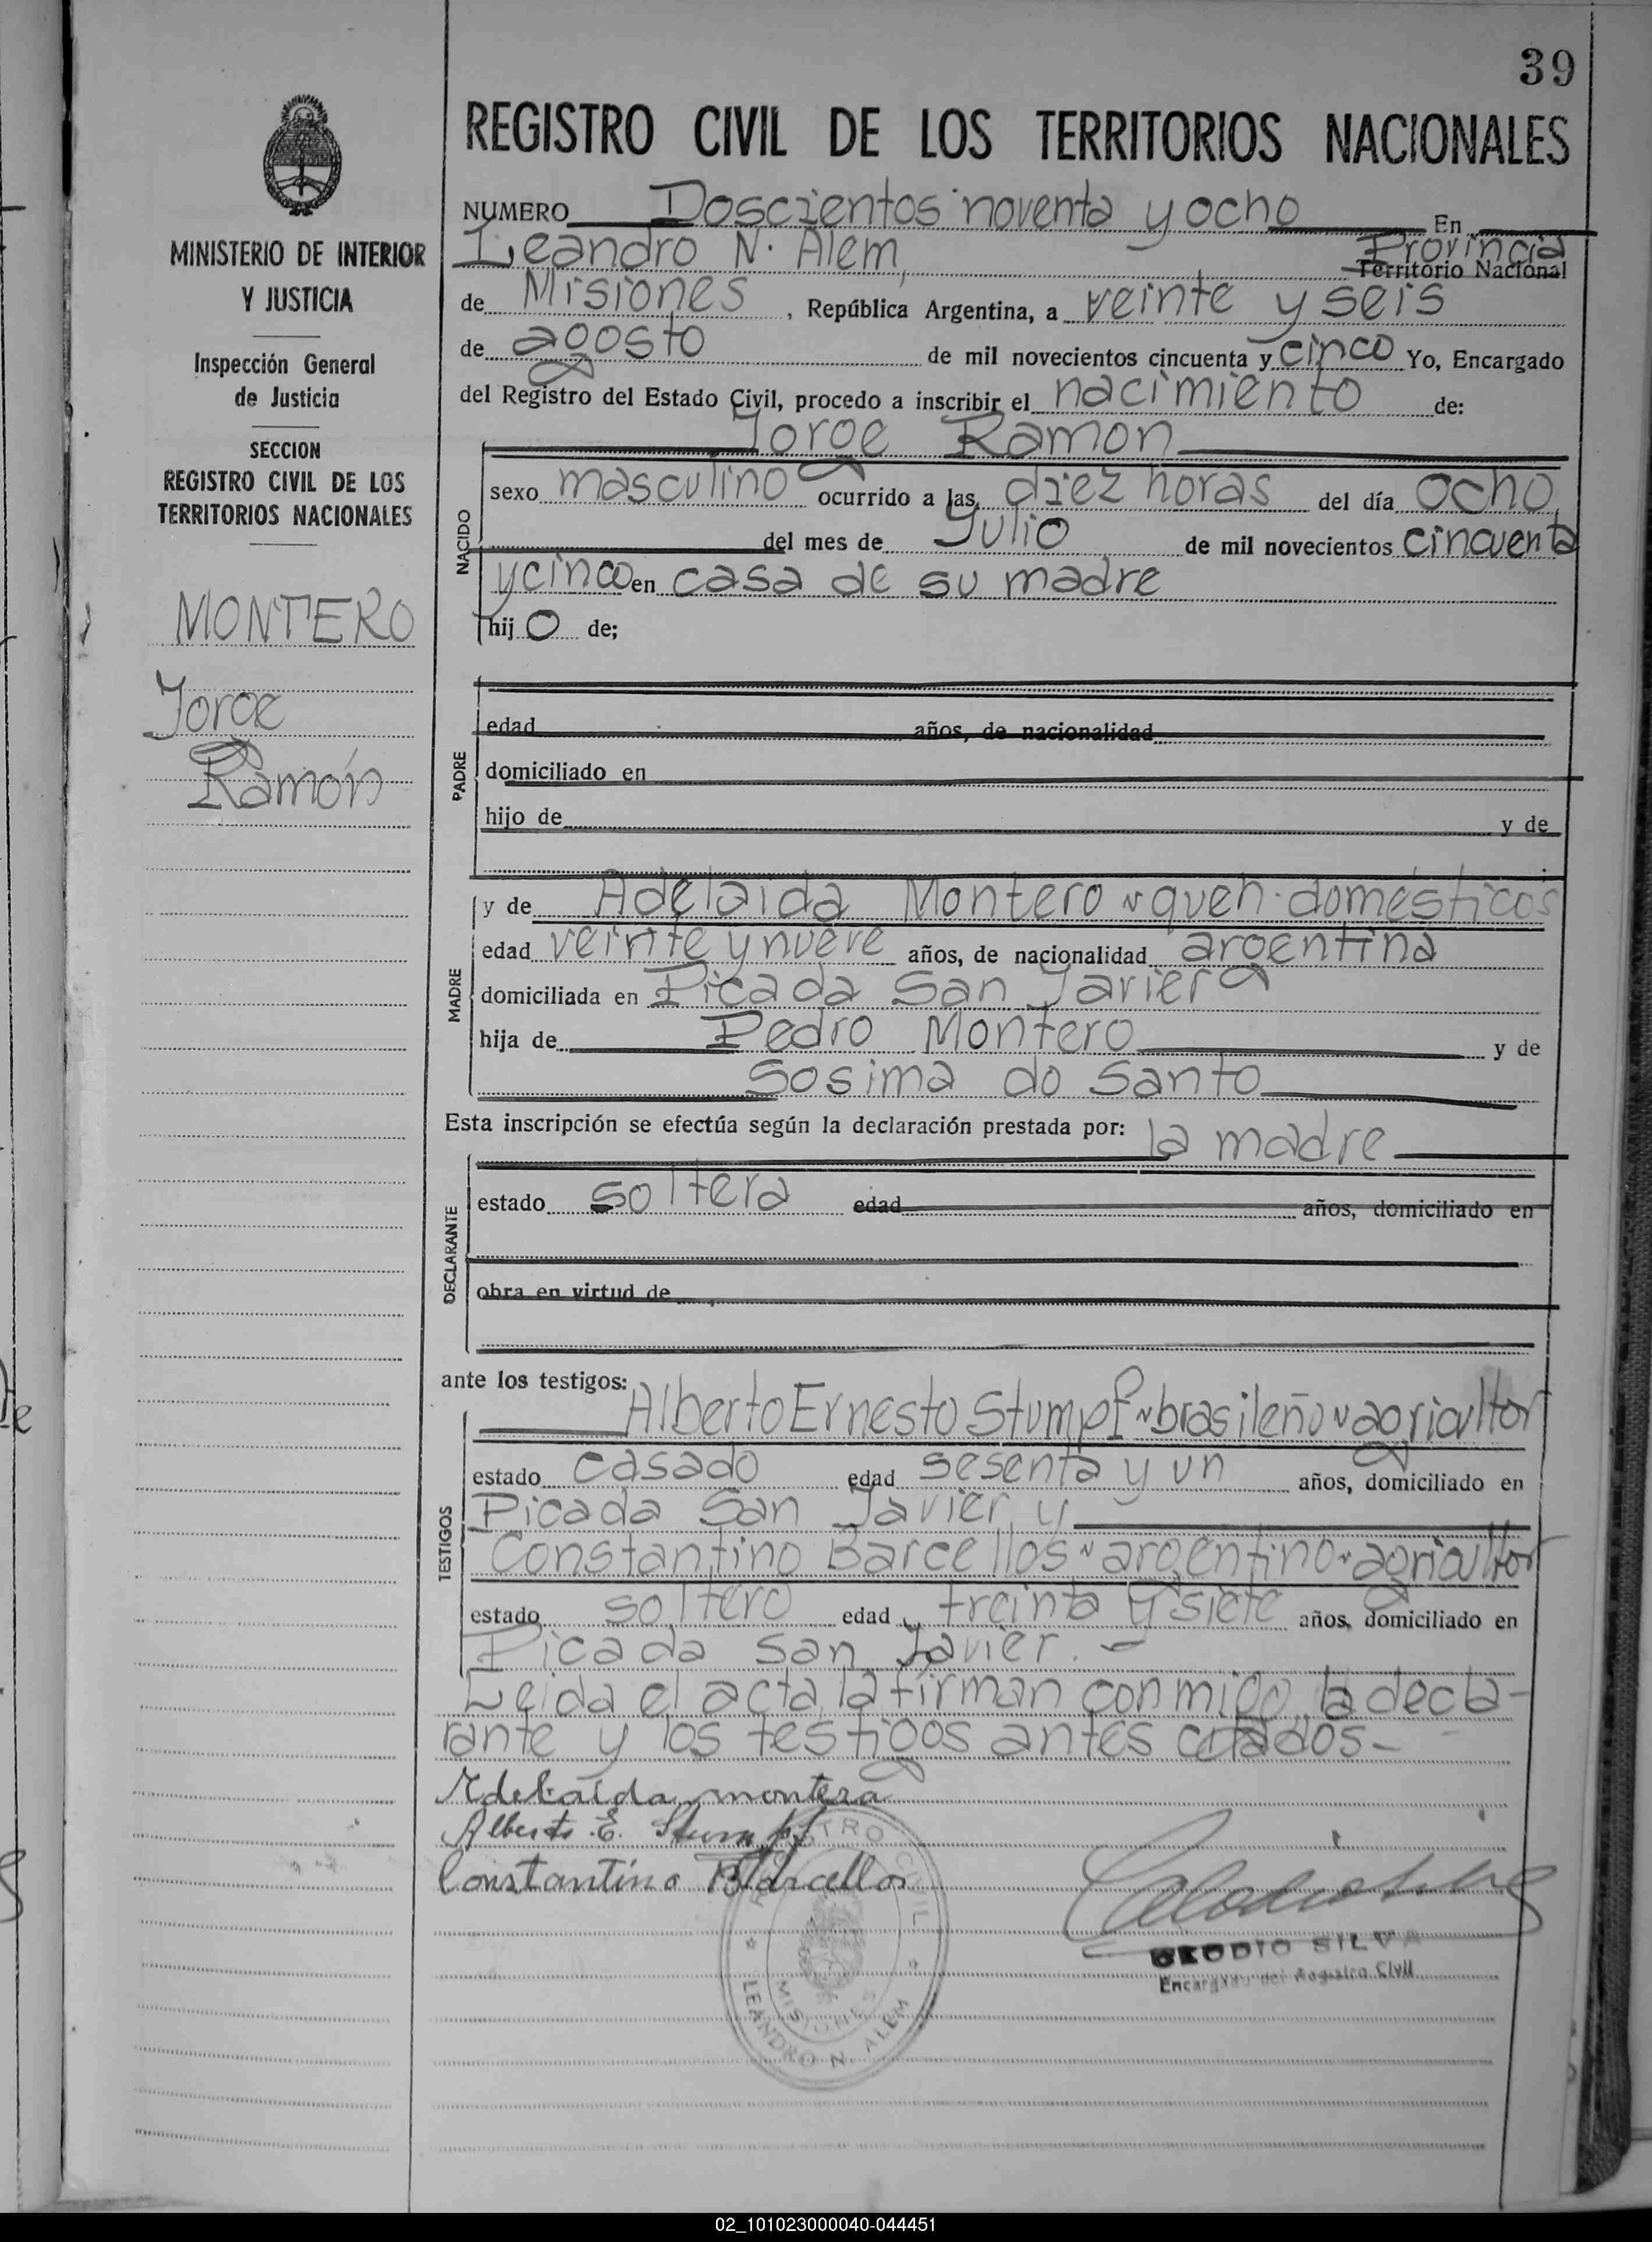 39
REGISTRO CIVIL DE LOS TERRITORIOS NACIONALES
MINISTERIO DE INTERIOR
Y JUSTICIA
Inspección General
de Justicia
SECCION
REGISTRO CIVIL DE LOS
TERRITORIOS NACIONALES
MONTERO
Jorge
Ramón
NUMERO Doscientos noventa y ocho En
Leandro N. Alem, Provincia
Territorio Nacional
de Misiones, República Argentina, a veinte y seis
de agosto de mil novecientos cincuenta y cinco Yo, Encargado
del Registro del Estado Civil, procedo a inscribir el nacimiento de:
Jorge Ramon
NACIDO
sexo masculino ocurrido a las diez horas del día ocho
del mes de Julio de mil novecientos cincuenta
y cinco en casa de su madre
hij o de;
PADRE
edad años, de nacionalidad
domiciliado en
hijo de y de
MADRE
y de Adelaida Montero ~ queh. domésticos
edad veinte y nueve años, de nacionalidad argentina
domiciliada en Picada San Javier
hija de Pedro Montero y de
Sosima do Santo
Esta inscripción se efectúa según la declaración prestada por: la madre
DECLARANTE
estado soltera edad años, domiciliado en
obra en virtud de
ante los testigos:
TESTIGOS
Alberto Ernesto Stumpf ~ brasileño ~ agricultor
estado casado edad sesenta y un años, domiciliado en
Picada San Javier y
Constantino Barcellos ~ argentino ~ agricultor
estado soltero edad treinta y siete años, domiciliado en
Picada San Javier. -
Leida el acta, la firman conmigo, la decla-
rante y los testigos antes citados -
Adelaida montera
Alberto E. Stumpf
Constantino Barcellos
REGISTRO CIVIL
MISIONES
LEANDRO N. ALEM
CLODIO SILVA
Encargado del Registro Civil
02_101023000040-044451